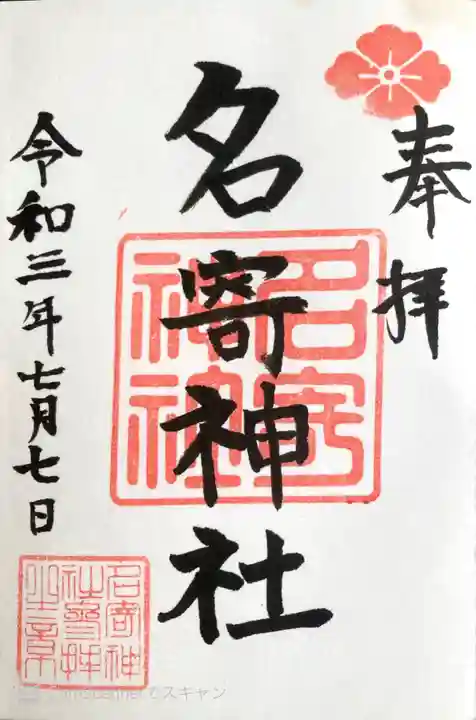 奉拝
名寄神社
名寄神社
令和三年七月七日
名寄神
社参拝
之章
でスキャン